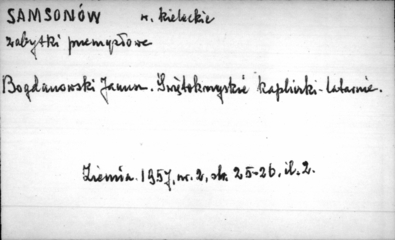 SAMSONÓW w. kieleckie
zabytki przemysłowe
Bogdanowski Janusz. Świętokrzyskie kapliczki-latarnie.
Ziemia. 1957, nr. 2, str. 25-26, il. 2.